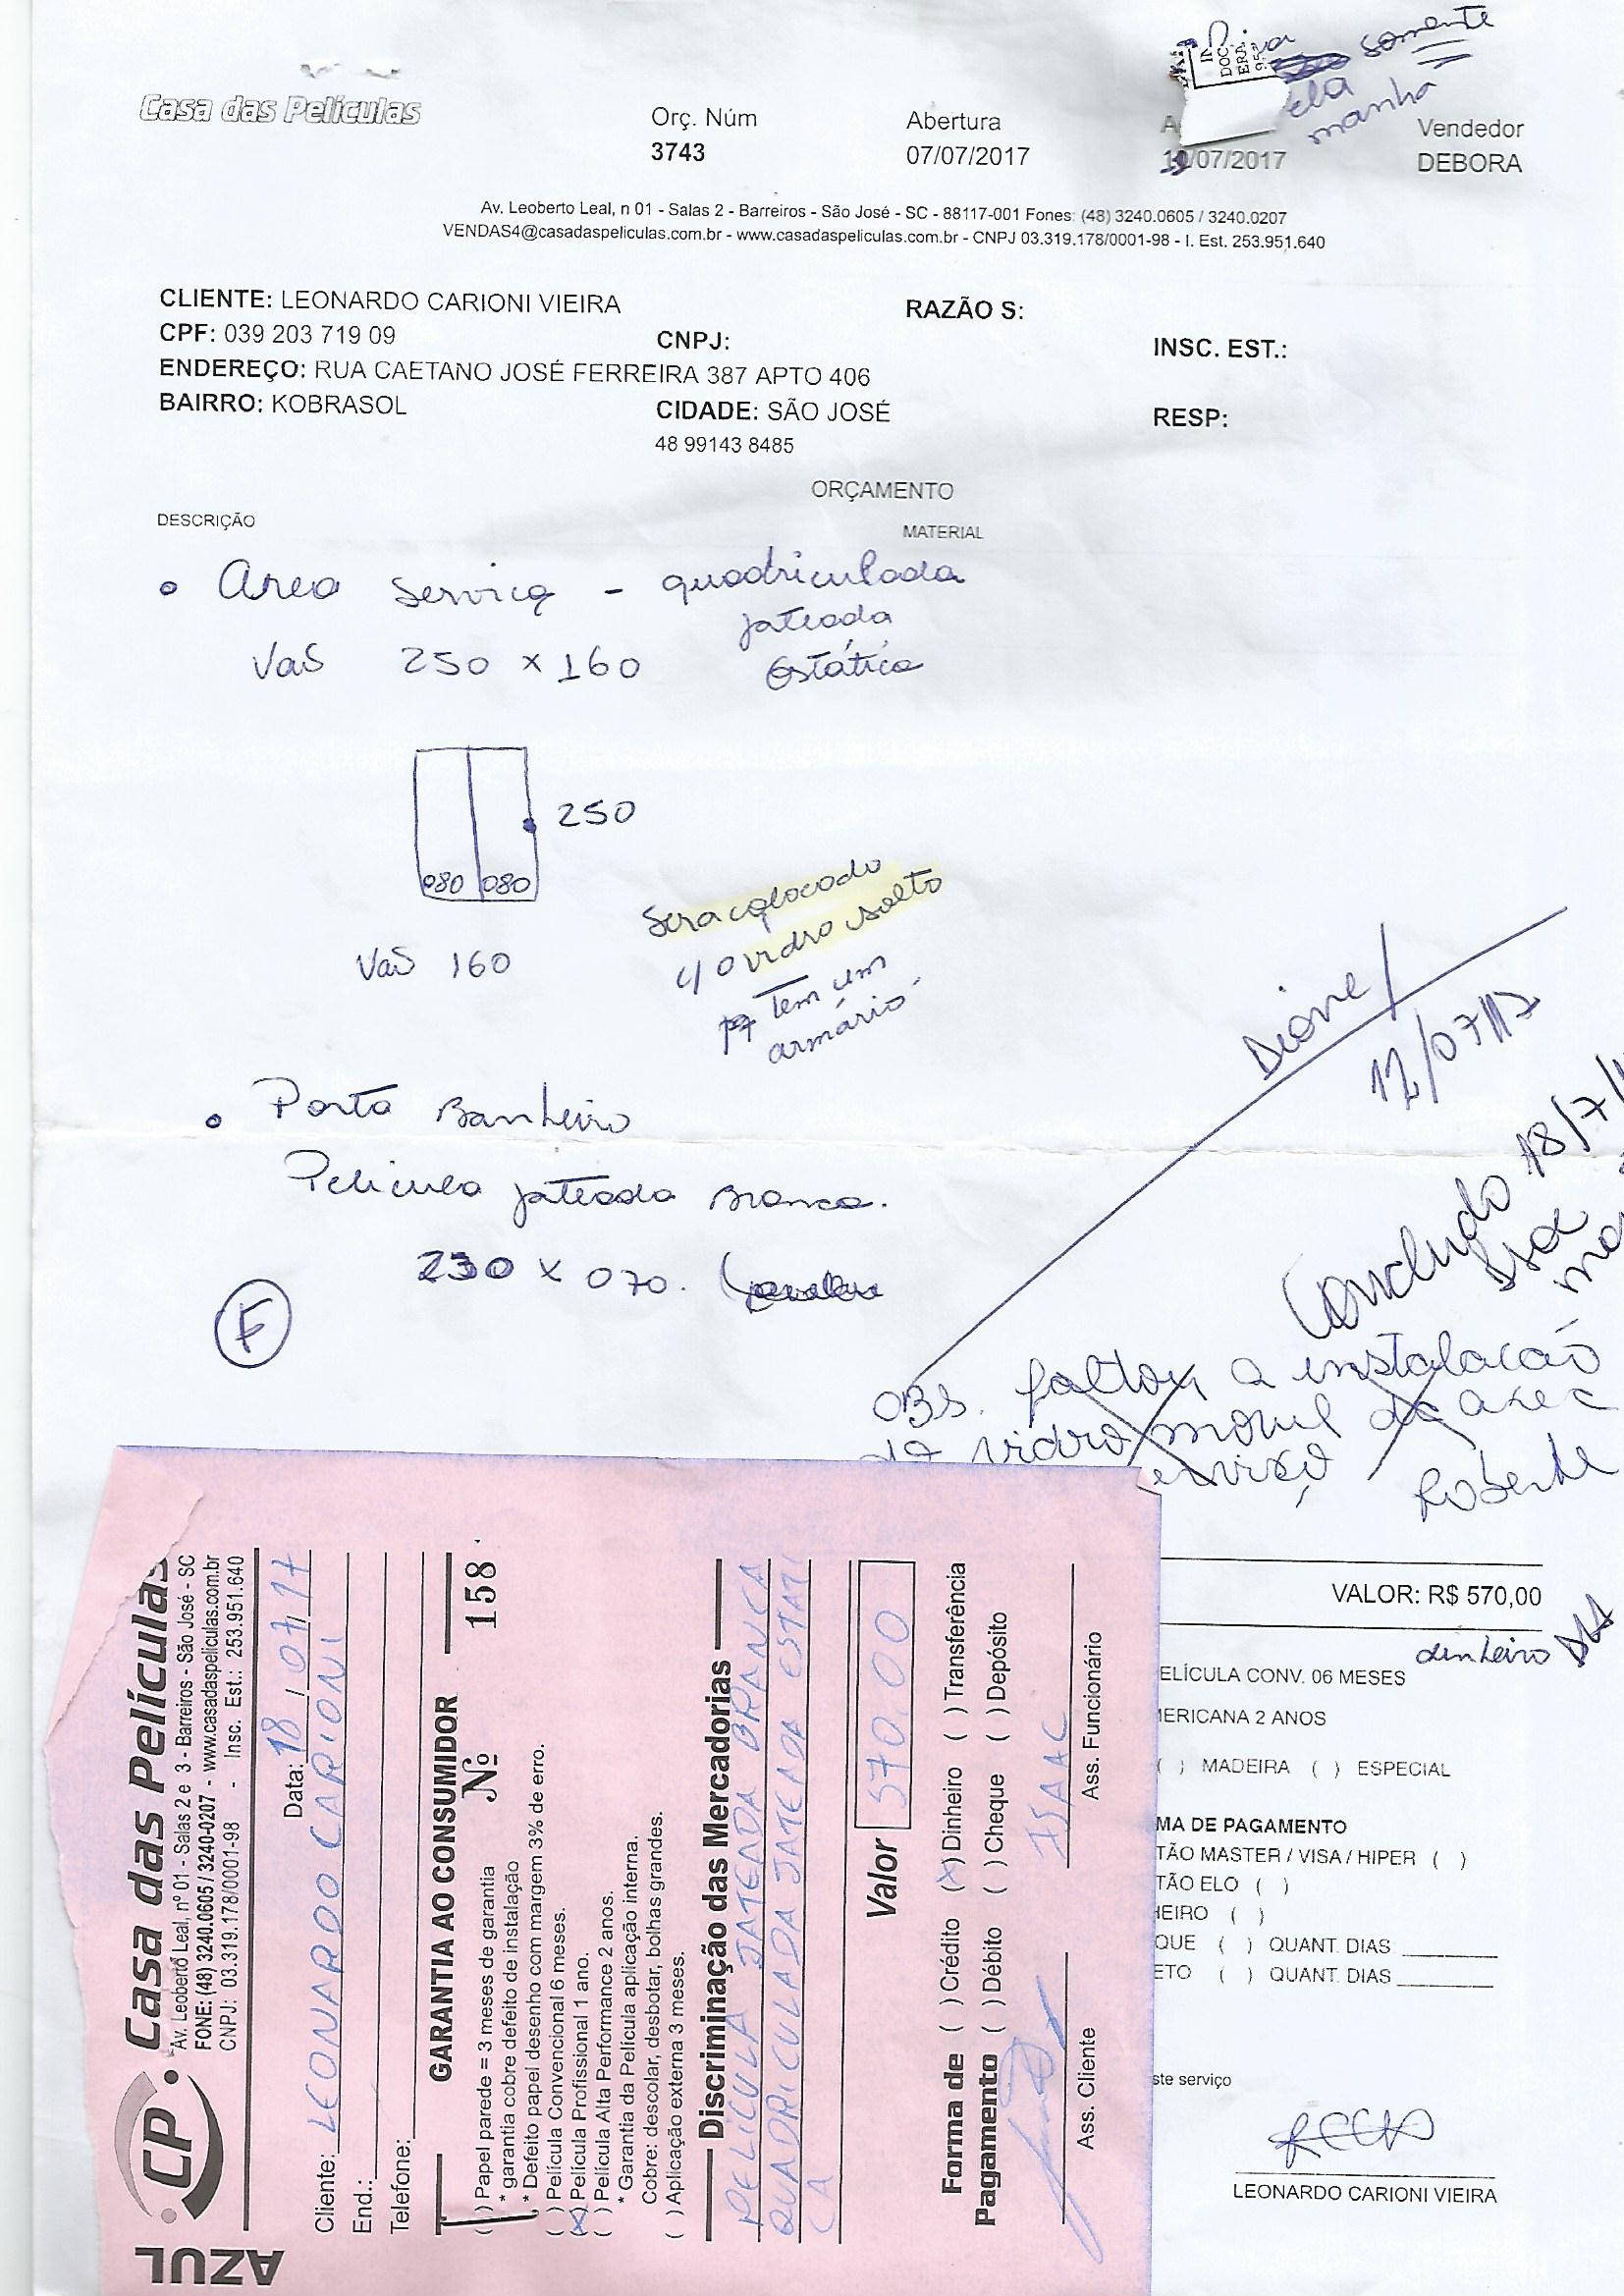 somente
ela
manhã
Casa das Películas
Orç. Núm
3743
Abertura
07/07/2017
/07/2017
Vendedor
DEBORA
Av. Leoberto Leal, n 01 - Salas 2 - Barreiros - São José - SC - 88117-001 Fones: (48) 3240.0605 / 3240.0207
VENDAS4@casadaspeliculas.com.br - www.casadaspeliculas.com.br - CNPJ 03.319.178/0001-98 - I. Est. 253.951.640
CLIENTE: LEONARDO CARIONI VIEIRA
RAZÃO S:
CPF: 039 203 719 09
CNPJ:
INSC. EST.:
ENDEREÇO: RUA CAETANO JOSÉ FERREIRA 387 APTO 406
BAIRRO: KOBRASOL
CIDADE: SÃO JOSÉ
RESP:
48 99143 8485
ORÇAMENTO
DESCRIÇÃO
MATERIAL
Area Serviço - quadriculada
jateada
Vaõ 250 x 160 estática
250
080 080
Vaõ 160
Sera colocado
c/ o vidro solto
pq Tem um
armário.
Dione/
12/07/17
Porta Banheiro
Pelicula jateada Branca.
230 x 070.
F
Concluido 18/7/1
OBS. faltou a instalacão
da vidro movel da area
erviço
Roberte
VALOR: R$ 570,00
dinheiro
ELÍCULA CONV. 06 MESES
MERICANA 2 ANOS
( ) MADEIRA ( ) ESPECIAL
MA DE PAGAMENTO
TÃO MASTER / VISA / HIPER ( )
TÃO ELO ( )
HEIRO ( )
QUE ( ) QUANT. DIAS
ETO ( ) QUANT. DIAS
ste serviço
LEONARDO CARIONI VIEIRA
AZUL
CP. Casa das Películas
Av. Leoberto Leal, nº 01 - Salas 2 e 3 - Barreiros - São José - SC
FONE: (48) 3240.0605 / 3240-0207 - www.casadaspeliculas.com.br
CNPJ: 03.319.178/0001-98 - Insc. Est.: 253.951.640
Data: 18/07/17
Cliente: LEONARDO CARIONI
End.:
Telefone:
GARANTIA AO CONSUMIDOR Nº 158
( ) Papel parede = 3 meses de garantia
* garantia cobre defeito de instalação
* Defeito papel desenho com margem 3% de erro.
( ) Película Convencional 6 meses.
(X) Película Profissional 1 ano.
( ) Película Alta Performance 2 anos.
* Garantia da Película aplicação interna.
Cobre: descolar, desbotar, bolhas grandes.
( ) Aplicação externa 3 meses.
Discriminação das Mercadorias
PELICULA JATEADA BRANCA
QUADRICULADA JATEADA ESTATI
CA
Valor 570.00
Forma de Pagamento
( ) Crédito (X) Dinheiro ( ) Transferência
( ) Débito ( ) Cheque ( ) Depósito
ISAAC
Ass. Cliente
Ass. Funcionário